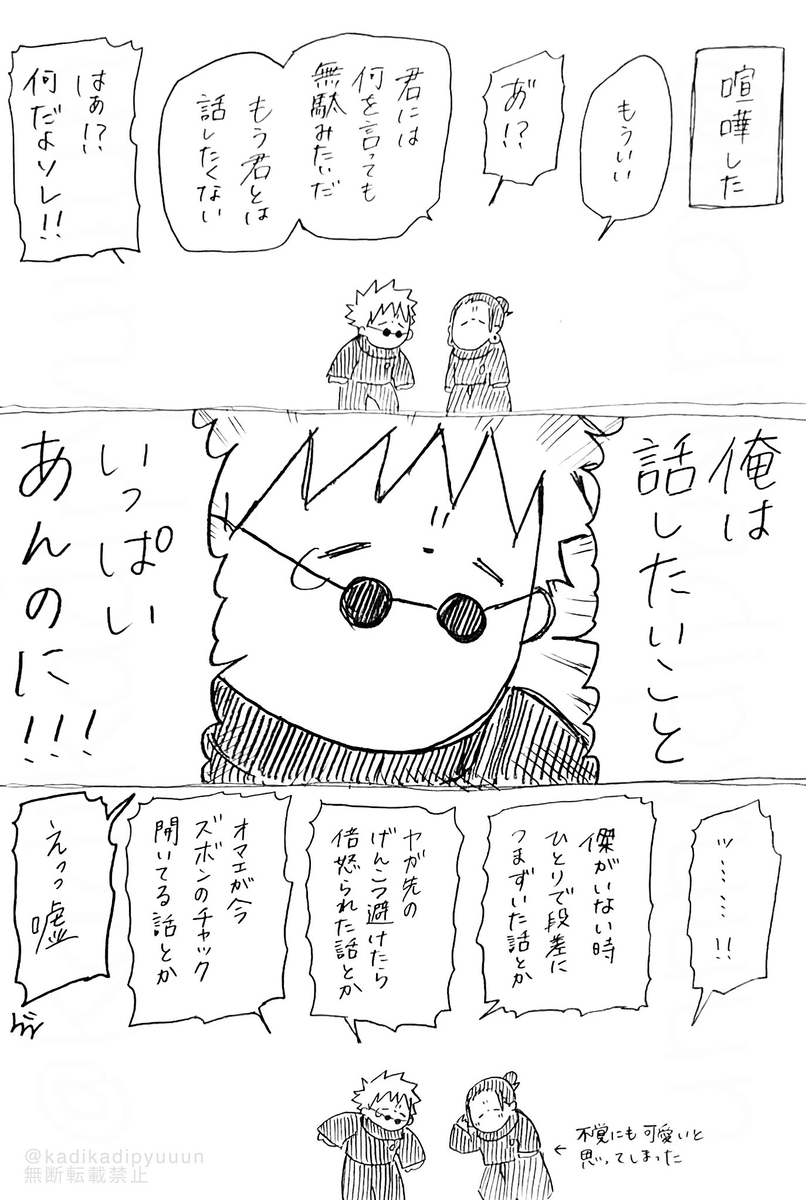 喧嘩した
もういい
あ゛!?
君には
何を言っても
無駄みたいだ
もう君とは
話したくない
はぁ!?
何だよソレ!!
俺は
話したいこと
いっぱい
あんのに!!!
ツ………!!
傑がいない時
ひとりで段差に
つまずいた話とか
ヤガ先の
げんこつ避けたら
倍怒られた話とか
オマエが今
ズボンのチャック
開いてる話とか
えっっ嘘
不覚にも可愛いと
思ってしまった
@kadikadipyuuun
無断転載禁止